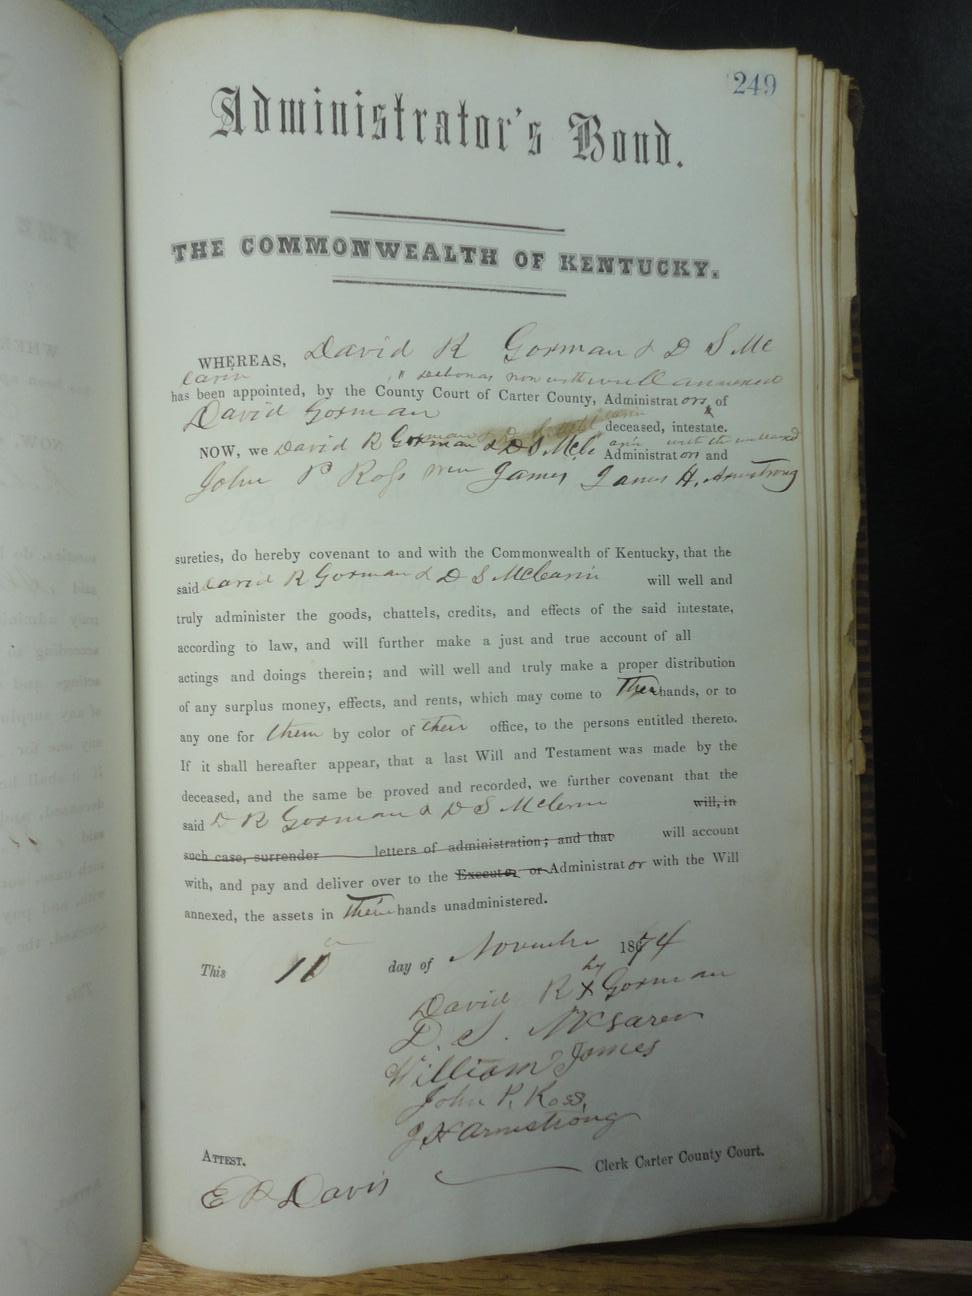 249
Administrator's Bond.
THE COMMONWEALTH OF KENTUCKY.
WHEREAS, David R Gorman & D S Mc
" debonas non with will annexed
has been appointed, by the County Court of Carter County, Administrators, of
David Gorman deceased, intestate.
NOW, we David R Gorman & D S McC Administrators and
John P Ross Wm James James H. Armstrong
sureties, do hereby covenant to and with the Commonwealth of Kentucky, that the
said David R Gorman & D S will well and
truly administer the goods, chattels, credits, and effects of the said intestate,
according to law, and will further make a just and true account of all
actings and doings therein; and will well and truly make a proper distribution
of any surplus money, effects, and rents, which may come to their hands, or to
any one for them by color of their office, to the persons entitled thereto.
If it shall hereafter appear, that a last Will and Testament was made by the
deceased, and the same be proved and recorded, we further covenant that the
said D R Gorman & D S will, in
such case, surrender letters of administration; and that will account
with, and pay and deliver over to the Executor or Administrator with the Will
annexed, the assets in their hands unadministered.
This 10 day of November 1874
David R X Gorman
D. S.
William James
John P. Ross,
J H Armstrong
ATTEST.
Clerk Carter County Court.
Davis